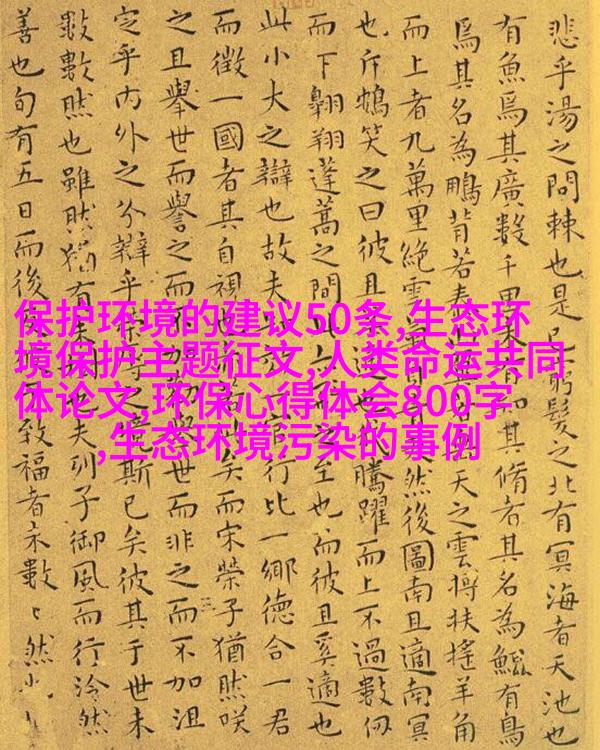 保护环境的建议50条,生态环
境保护主题征文,人类命运共同
体论文,环保心得体会800字
,生态环境污染的事例
悲乎湯之問棘也是窮髮之北有冥海者天池也
有魚焉其廣數千里知其脩者其名為鯤有鳥
焉其名為鵬背若泰山天之雲摶扶搖羊角
而上者九萬里絕雲氣然後圖南且適南冥
也斥鴳笑之曰彼且騰躍而上不過數仞
而下翱翔蓬蒿之間此之至也而彼且奚適也
此小大之辯也故夫官行比一鄉德合一君
而徵一國者其自視也矣而宋榮子猶然咲
之且舉世而譽之而不舉世而非之而不加沮
定乎內外之分辯乎之境斯已矣彼其于世未
數數然也雖然猶有也夫列子御風而行泠然
善也旬有五日而後致福者未數〻然也